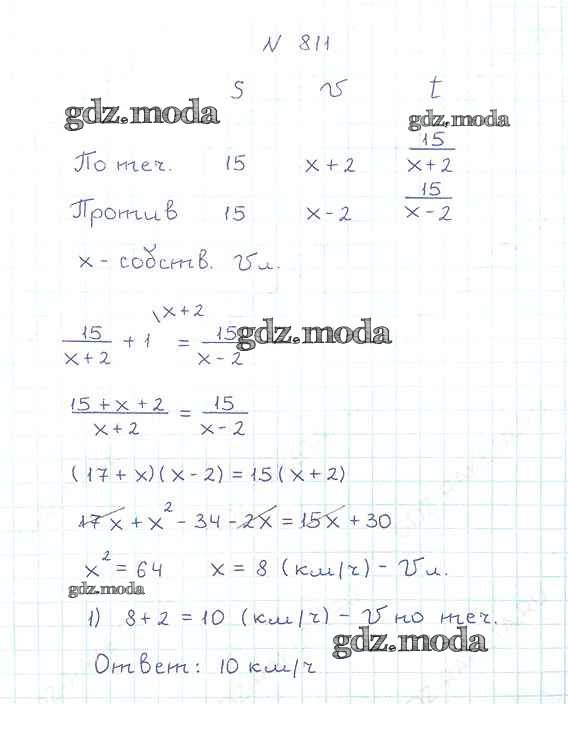 N 811
S v t
gdz.moda gdz.moda
По теч. 15 x+2 15/(x+2)
Против 15 x-2 15/(x-2)
x - собств. Vл.
15/(x+2) + 1 \x+2 = 15/(x-2) gdz.moda
(15+x+2)/(x+2) = 15/(x-2)
(17+x)(x-2)=15(x+2)
17x+x²-34-2x=15x+30
x²=64 x=8 (км/ч) - Vл.
gdz.moda
1) 8+2=10 (км/ч) - V по теч.
gdz.moda
Ответ: 10 км/ч